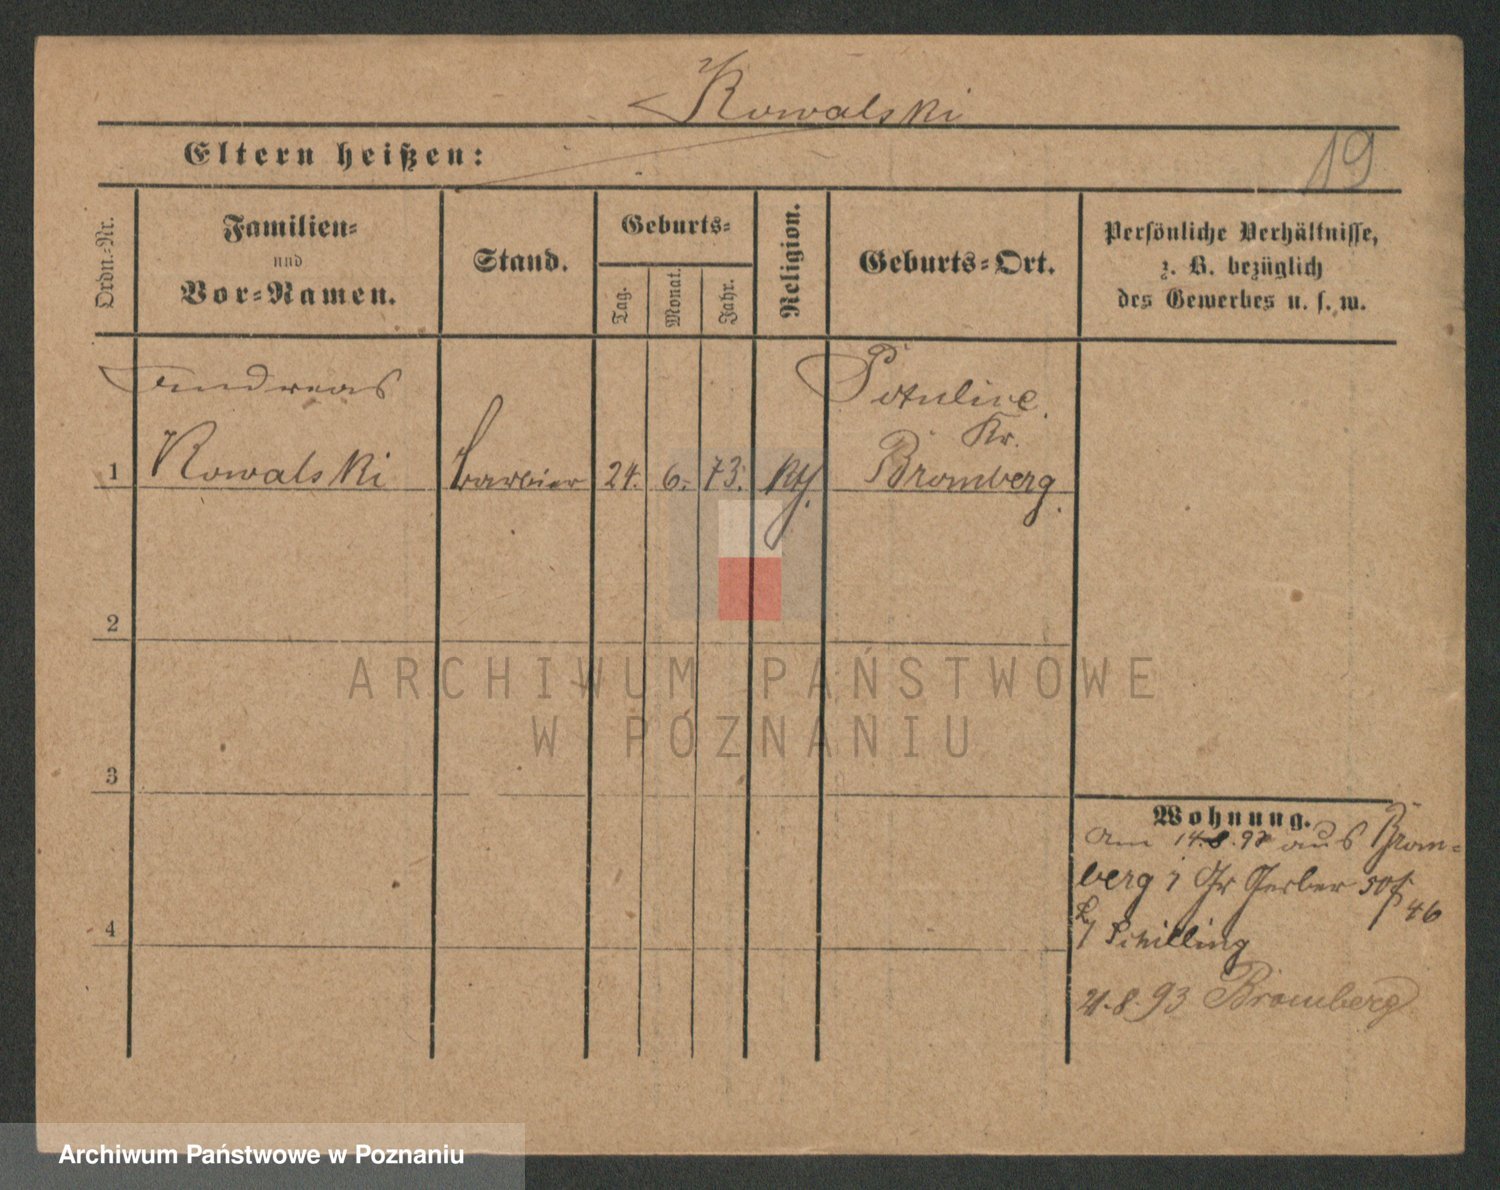 Kowalski
Eltern heißen:
19
Ordn.-Nr.
Familien-
und
Vor-Namen.
Stand.
Geburts-
Tag.
Monat.
Jahr.
Religion.
Geburts-Ort.
Persönliche Verhältnisse,
z. B. bezüglich
des Gewerbes u. s. w.
Andreas
1 Kowalski Barbier 24. 6. 73. Kth.
Potulice
Kr.
Bromberg.
2
3
4
Wohnung.
am 14.8.93 aus Brom-
berg Gr Gerber 50
46
Schilling
21.8.93 Bromberg
ARCHIWUM PAŃSTWOWE
W POZNANIU
Archiwum Państwowe w Poznaniu